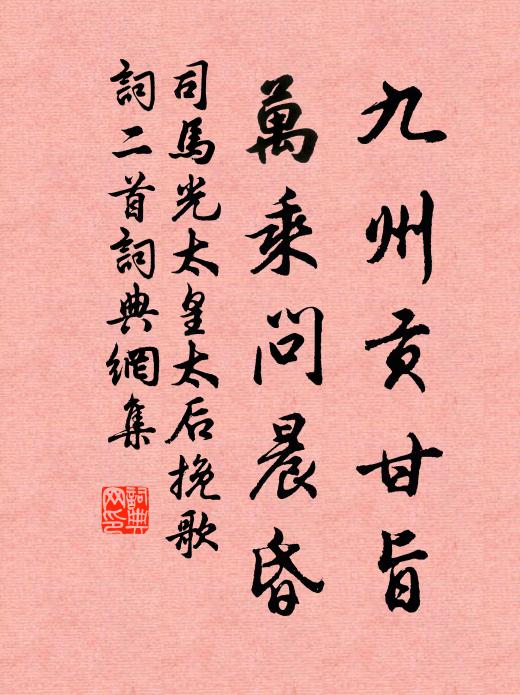 九州貢甘旨
萬乘問晨昏
司馬光太皇太后挽歌
詞二首詞典網集
詞典
网印